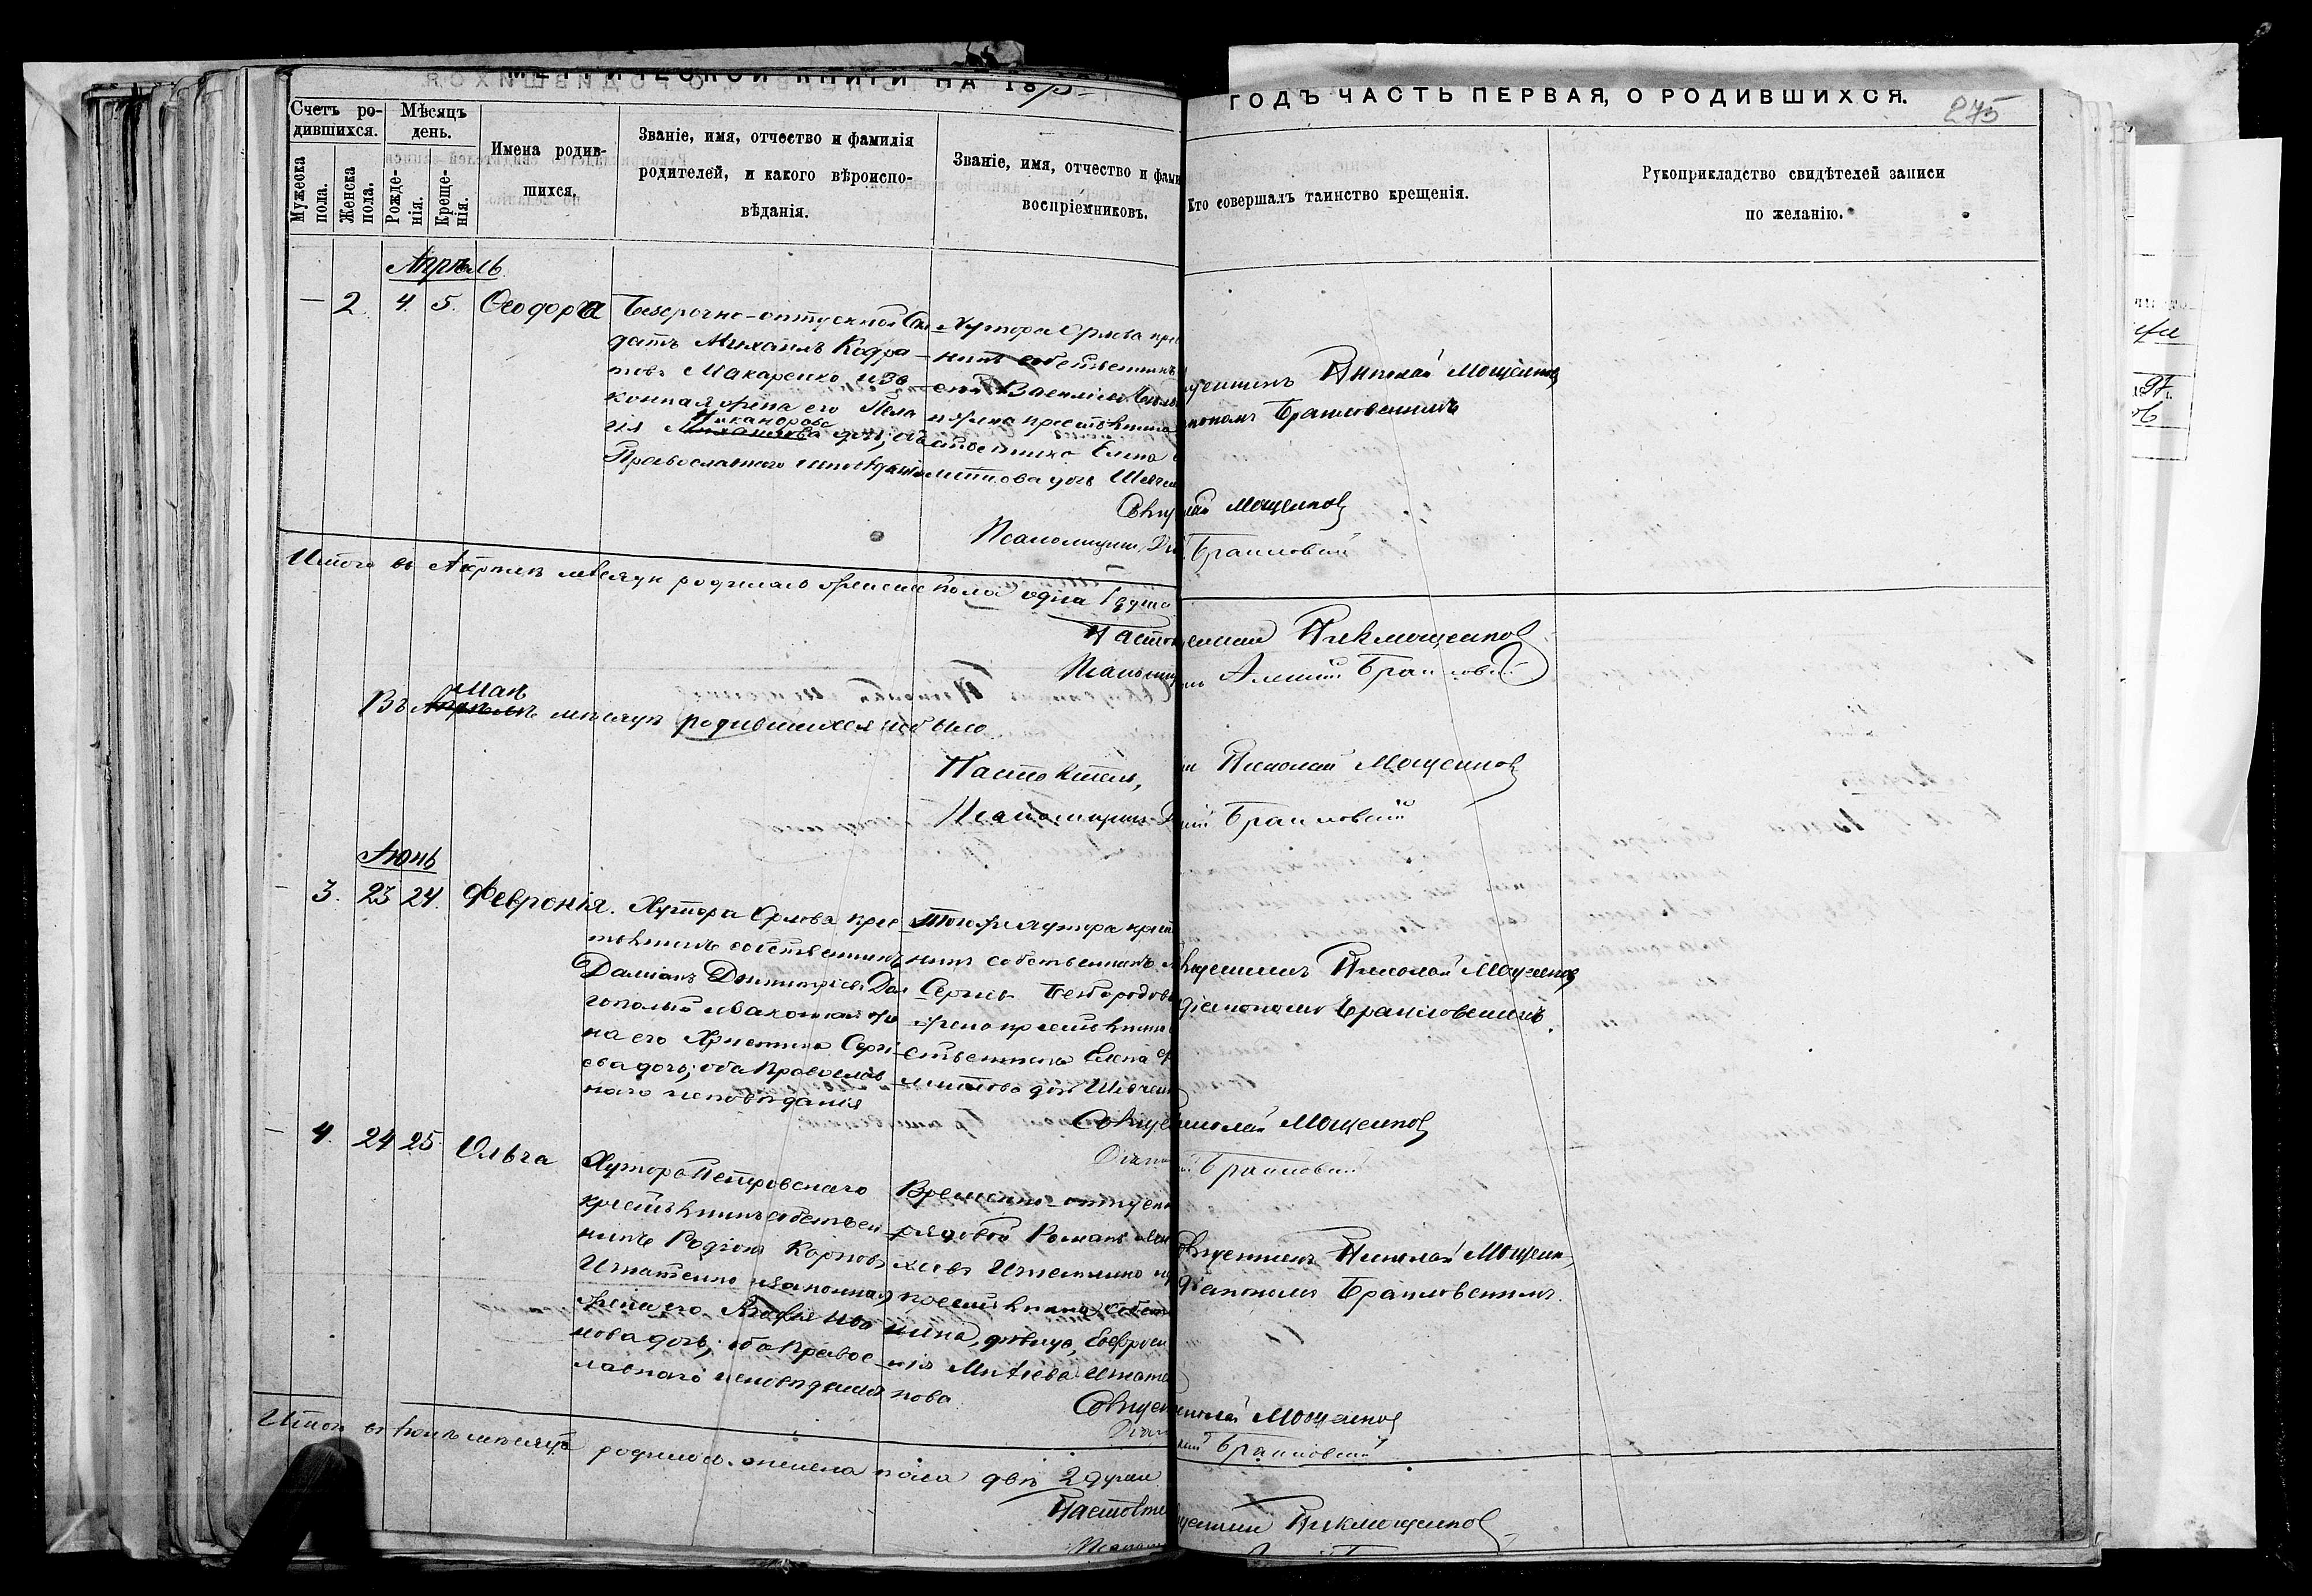 МЕТРИЧЕСКОЙ КНИГИ НА 18
ГОДЪ ЧАСТЬ ПЕРВАЯ, О РОДИВШИХСЯ.
275
Счетъ ро-
дившихся.
Мужеска
пола.
Женска
пола.
Мѣсяцъ
день.
Рожде-
нія.
Креще-
нія.
Имена родив-
шихся.
Званіе, имя, отчество и фамилія
родителей, и какого вѣроиспо-
вѣданія.
Званіе, имя, отчество и фами
воспріемниковъ.
Кто совершалъ таинство крещенія.
Рукоприкладство свидѣтелей записи
по желанію.
Апрѣль
— 2. 4. 5. Ѳеодора
Безсрочно-отпускной Сол
датъ Михаилъ Кодра
товъ Макаренко и за
конная жена его Пела
Никанорова
гія Михайлова дочь; оба
Православнаго исповѣданія
Хутора Орлова крес
нинъ собственникъ
Василій
Елена
митріова дочь Шевчен
Николай Мощенковъ
Браиловскимъ
Мощенковъ
Псаломщикъ
Браиловскій
Итого въ Апрѣлѣ мѣсяцѣ родилась женска пола одна 1 душа
Настоя
Никмощенков
Псаломщ
Браиловскій
Маѣ
Въ Апрѣлѣ мѣсяцѣ родившихся не было
Настоятель,
Николай Мощенков
Псаломщикъ
Браиловскій
Іюнь
— 3. 23 24. Февронія.
Хутора Орлова крес
тьянинъ собственникъ
Даміанъ Димитріевъ Дол
гополый и законная же
на его Христина Сергі
ева дочь; оба Православ
наго исповѣданія
того же хутора крест
нинъ собственникъ
Сергій Безбородов
жена крестьянина
ственника Елена
митріова дочь Шевчен
Священникъ Николай Мощенков
діакономъ Браиловскимъ.
Свящ
николай Мощенков
Діак
Браиловскій
— 4. 24 25. Ольга
Хутора Петровскаго
крестьянинъ собствен
никъ Родіонъ Карповъ
Игнатенко и законная
жена его Агафія Ива
нова дочь; оба Правос
лавнаго исповѣданія
Временно-отпускн
рядовой Романъ
хіевъ Игнатенко
крестьянина собст
ника, дѣвица, Евфроси
нія Матѣева Игнате
кова
Священникъ Николай Мощен
Діакономъ Браиловскимъ.
Свящ
николай Мощенков
Діак
Браиловскій
Итого въ Іюнѣ мѣсяцѣ родилось женска пола двѣ 2 души
Настояте
Никмощенков